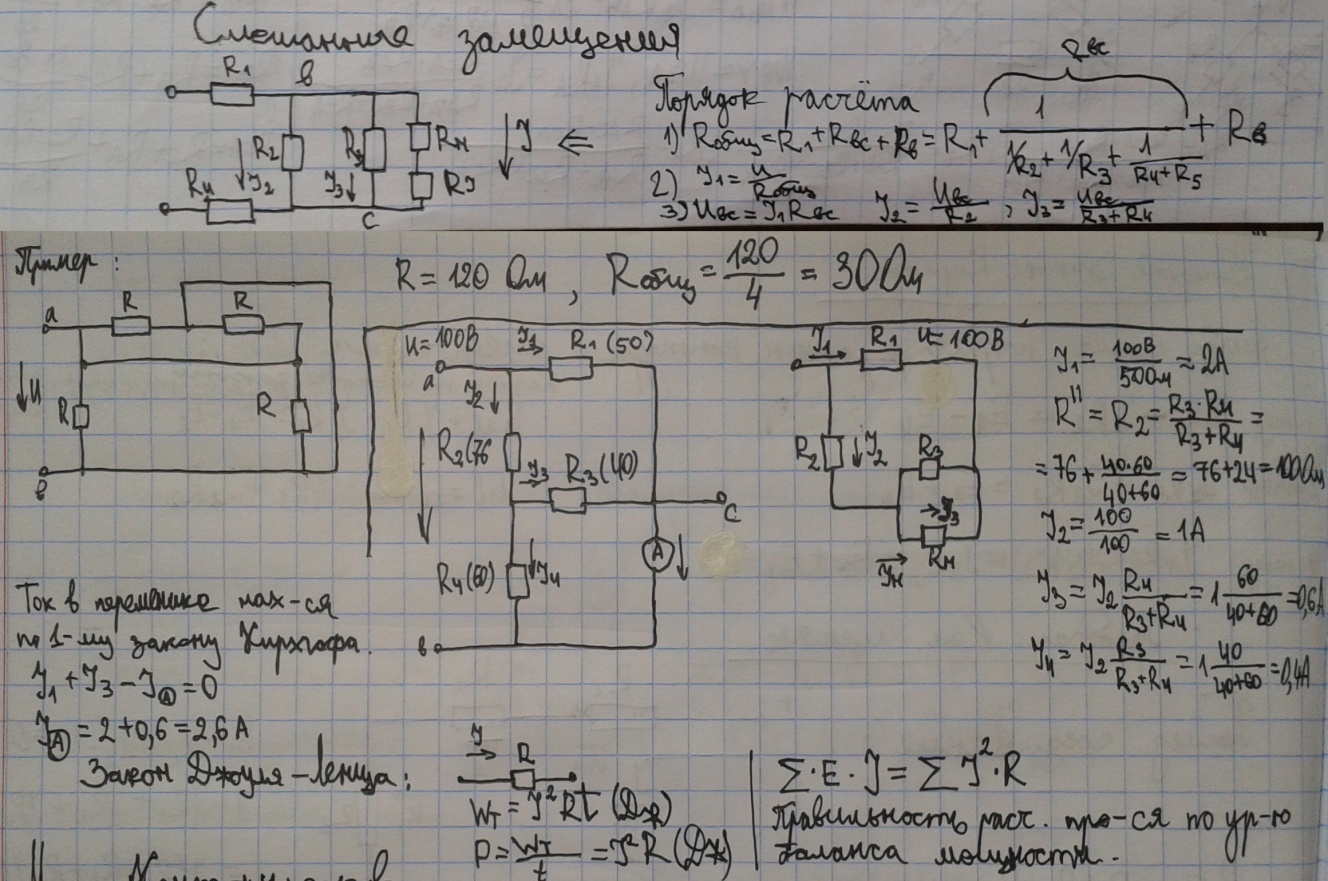 Смешанные замещения
R₁ в
R₂ R₃ Rн
I₂ I₃ R5
R4 с
I ⇐
Порядок расчёта
Rвс
1) Rобщ = R₁ + Rвс + R6 = R₁ + 1/(1/R₂ + 1/R₃ + 1/(R4+R5)) + R6
2) I₁ = U/Rобщ
3) Uвс = I₁Rвс I₂ = Uвс/R₂ , I₃ = Uвс/(R₃+R4)
Пример:
R = 120 Ом , Rобщ = 120/4 = 30 Ом
a R R
U R R
в
U = 100В I₁ R₁ (50)
a I₂
R₂(76 I₃ R₃(40)
с
R4(60) I4 A
в
I₁ R₁ U = 100В
R₂ I₂ R₃
I₃
Iн Rн
I₁ = 100В/50Ом = 2А
R'' = R₂ = R₃·R4/(R₃+R4) =
= 76 + 40·60/(40+60) = 76+24 = 100Ом
I₂ = 100/100 = 1А
I₃ = I₂ R4/(R₃+R4) = 1 60/(40+60) = 0,6А
I4 = I₂ R3/(R3+R4) = 1 40/(40+60) = 0,4А
Ток в перемычке нах-ся
по 1-му закону Кирхгофа.
I₁ + I₃ − IА = 0
IА = 2+0,6 = 2,6 А
Закон Джоуля – Ленца:
I R
Wт = I²Rt (Дж)
P = Wт/t = I²R (Дж)
∑·E·I = ∑ I²·R
Правильность расч. про-ся по ур-ю
баланса мощности.